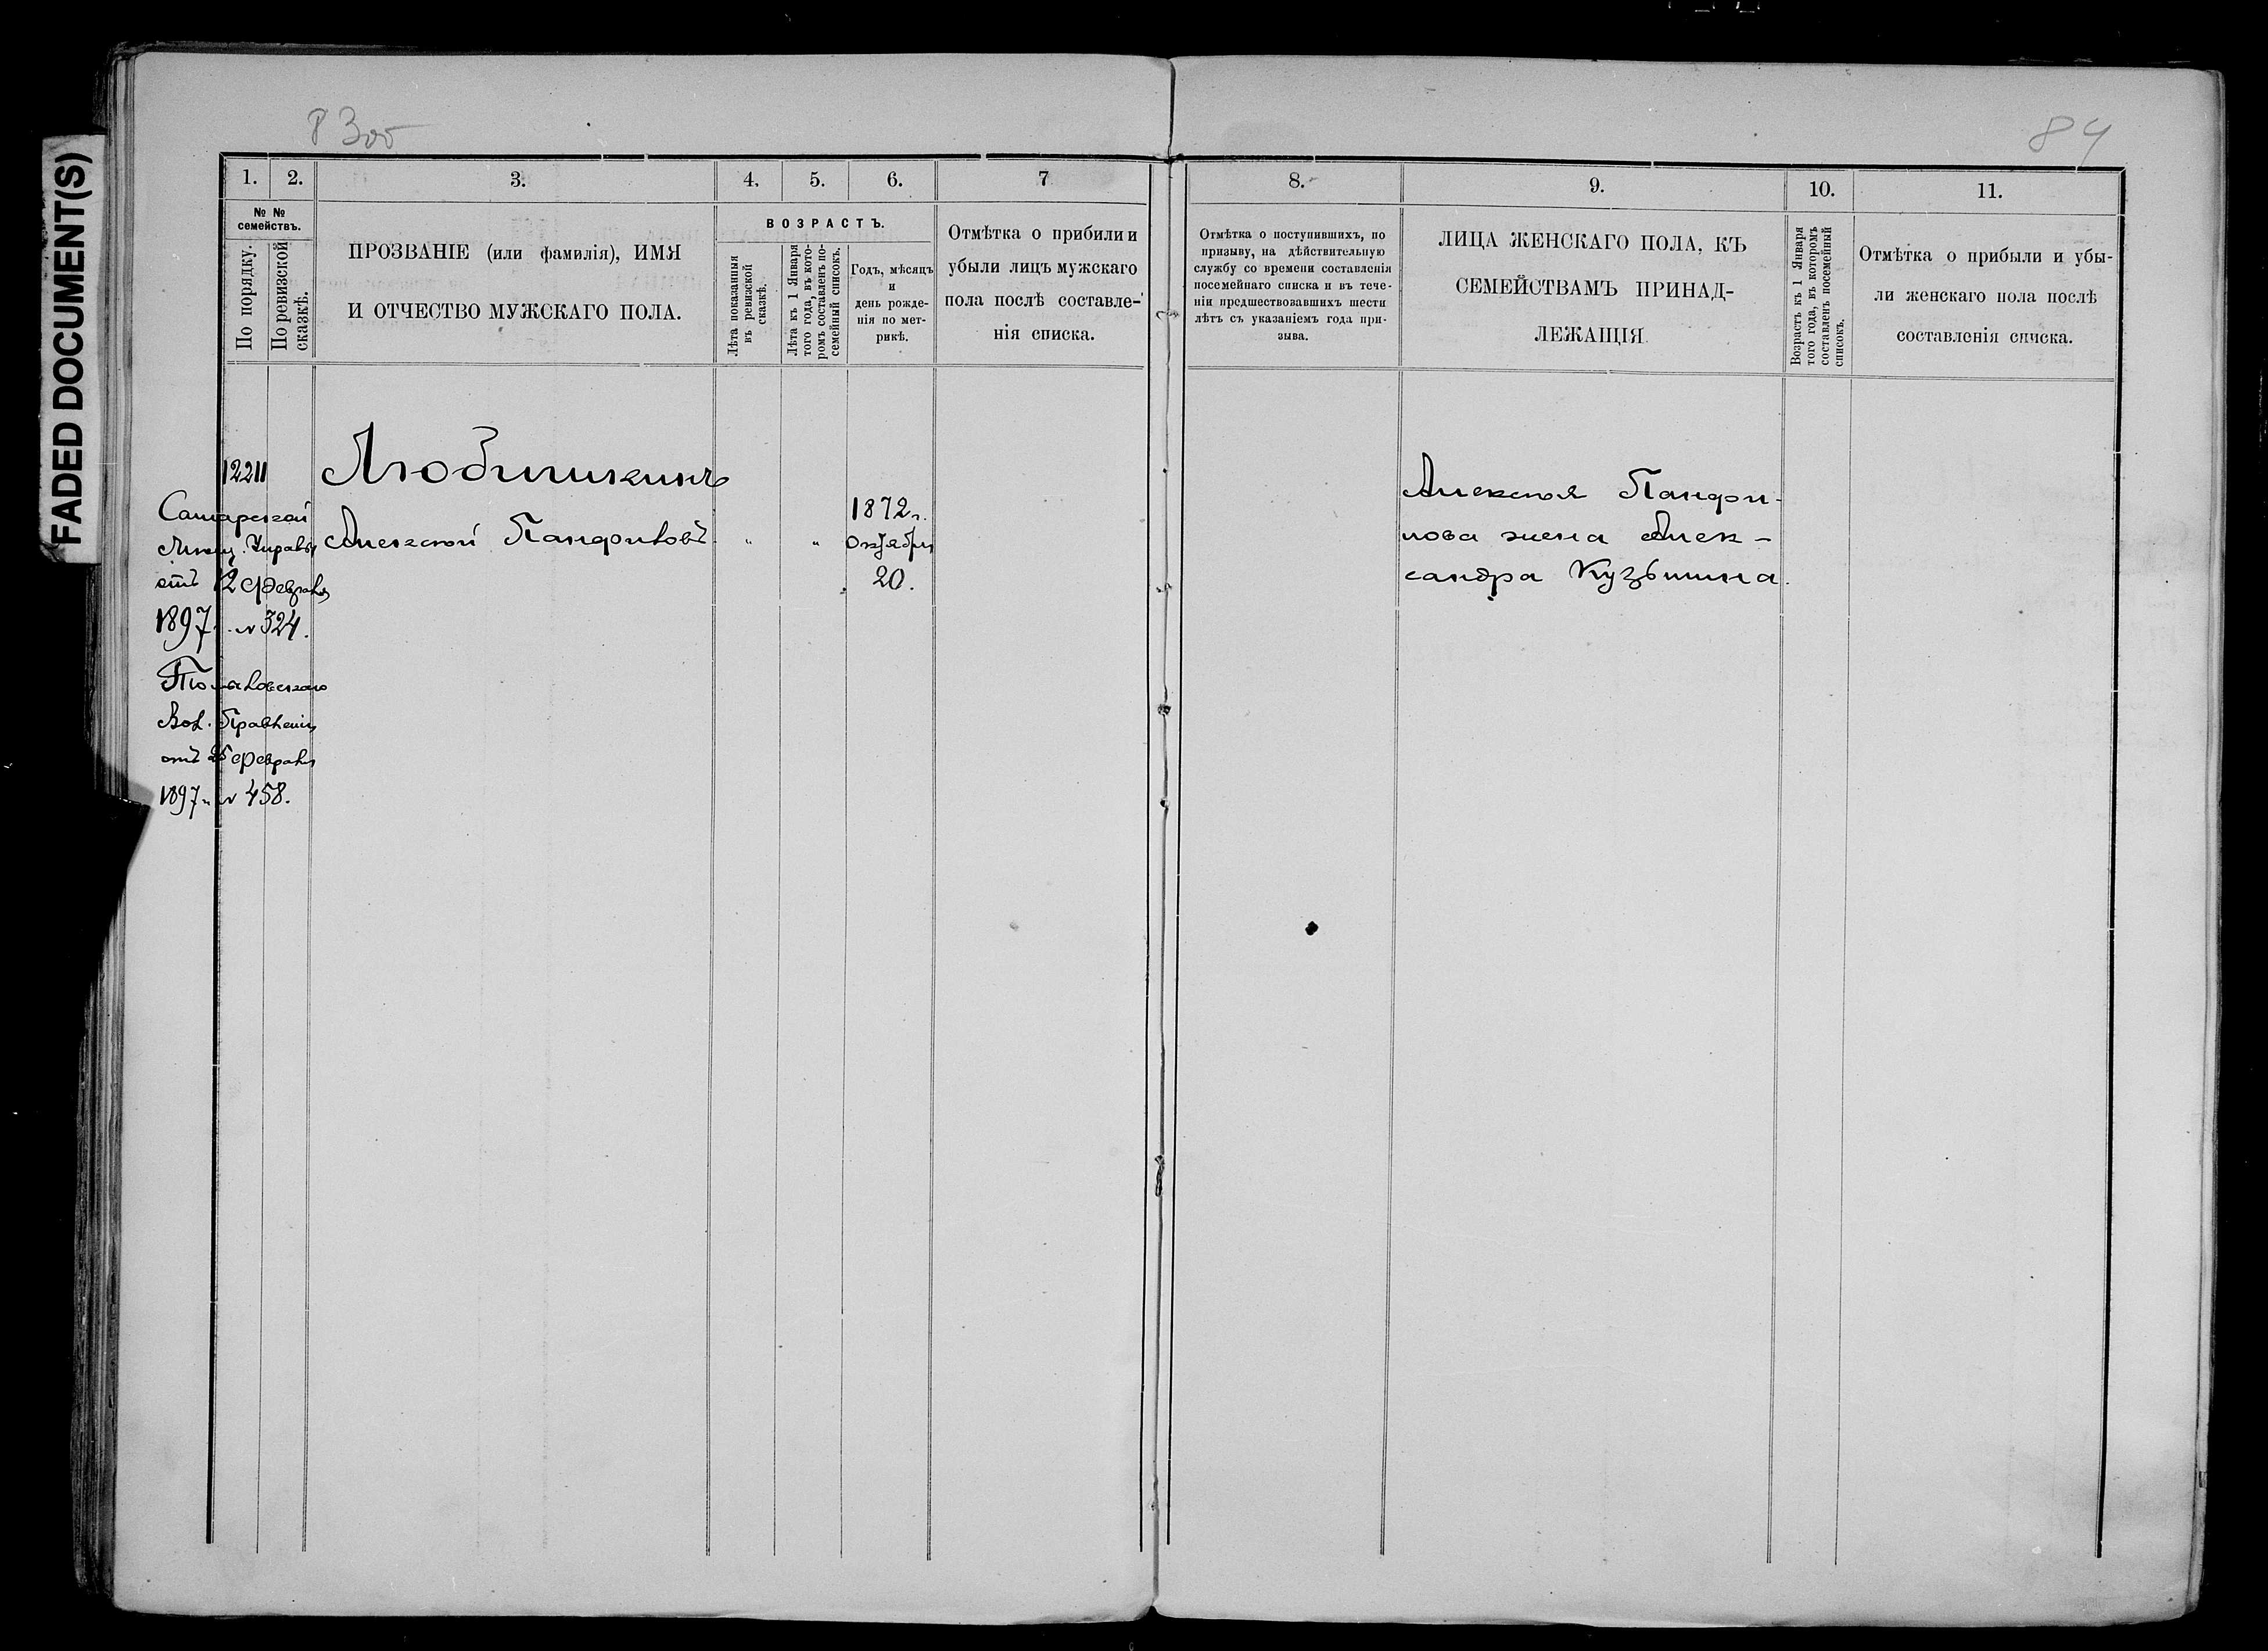 FADED DOCUMENT(S)
84
1. 2. 3. 4. 5. 6. 7
№ №
семействъ.
По порядку.
По ревизской
сказкѣ.
ПРОЗВАНІЕ (или фамилія), ИМЯ
И ОТЧЕСТВО МУЖСКАГО ПОЛА.
ВОЗРАСТЪ.
Лѣта показанныя
въ ревизской
сказкѣ.
Лѣта къ 1 Января
того года, въ кото-
ромъ составленъ по-
семейный списокъ.
Годъ, мѣсяцъ
и
день рожде-
нія по мет-
рикѣ.
Отмѣтка о прибили и
убыли лицъ мужскаго
пола послѣ составле-
нія списка.
1221
Любишкинъ
Самарской
Мѣщ. Управы
отъ 12 февраля
1897 г. № 324.
Вол. Правленія
отъ 25 февраля
1897 г. № 458.
Алексей Панфиловъ " "
1872 г.
октября
20.
8. 9. 10. 11.
Отмѣтка о поступившихъ, по
призыву, на дѣйствительную
службу со времени составленія
посемейнаго списка и въ тече-
ніи предшествовавшихъ шести
лѣтъ съ указаніемъ года при-
зыва.
ЛИЦА ЖЕНСКАГО ПОЛА, КЪ
СЕМЕЙСТВАМЪ ПРИНАД-
ЛЕЖАЩІЯ.
Возрастъ къ 1 Января
того года, въ которомъ
составленъ посемейный
списокъ.
Отмѣтка о прибыли и убы-
ли женскаго пола послѣ
составленія списка.
Алексея Панфи-
лова жена Алек-
сандра Кузьмина.